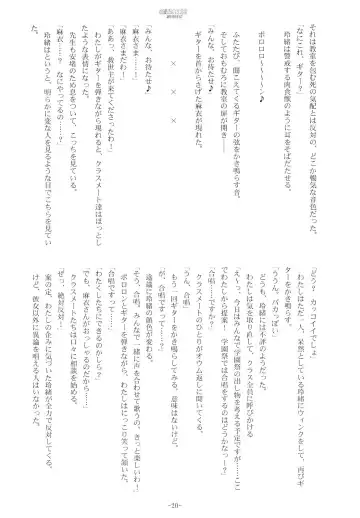 それは教室を包む死の気配とは反対の、どこか暢気な音色だった。
「なにこれ、ギター？」
玲緒は警戒する肉食獣のように耳をそばだたせる。
ポロロロ〜〜〜〜〜ン♪
ふたたび、聞こえてくるギターの弦をかき鳴らす音。
そしておもむろに教室の扉が開き――
ギターを首からさげた麻衣が現れた。
「みんな、お待たせ♪」
× × ×
「みんな、お待たせ♪」
「ああ、救世主が来てくださったわ！」
「麻衣さまだわ！」
「麻衣さま！」
わたしがギターを弾きながら現れると、クラスメート達はほっとし
たような表情になった。
先生も安堵のため息をついて、こっちを見ている。
「麻衣……？　なにやってるの……？」
玲緒はというと、明らかに変な人を見るような目でこちらを見てい
た。
「どう？　カッコイイでしょ」
「ううん、バカっぽい」
わたしはただ一人、呆然としている玲緒にウィンクをして、再びギ
ターをかき鳴らす。
どうも、玲緒には不評のようだった。
わたしは気を取り直して、クラス全員に呼びかける
「えーっ、今日はみんなで学園祭の出し物を考える予定ですが……
でたしから提案。学園祭では合唱をするのはどうかなーっ？」
「合唱……ですか？」
クラスメートのひとりがオウム返しに聞いてくる。
「うん、合唱」
もう一回ギターをかき鳴らしてみる。意味はないけど。
「が、合唱ですって……!?」
途端に玲緒の顔色が変わる。
「そう、合唱。みんなで一緒に声を合わせて歌うの。きっと楽しいわ」
ポロロンとギターを弾きながら、わたしはにっこり笑って頷いた。
「合唱ですって……」
「わたくしたちにできるのかしら？」
「でも、麻衣さんがおっしゃるのだから……」
クラスメートたちは口々に相談を始める。
「ぜっ、絶対反対！」
案の定、わたしの企みに気づいた玲緒が全力で反対してくる。
けど、彼女以外に異論を唱える人はいなかった。
-20-